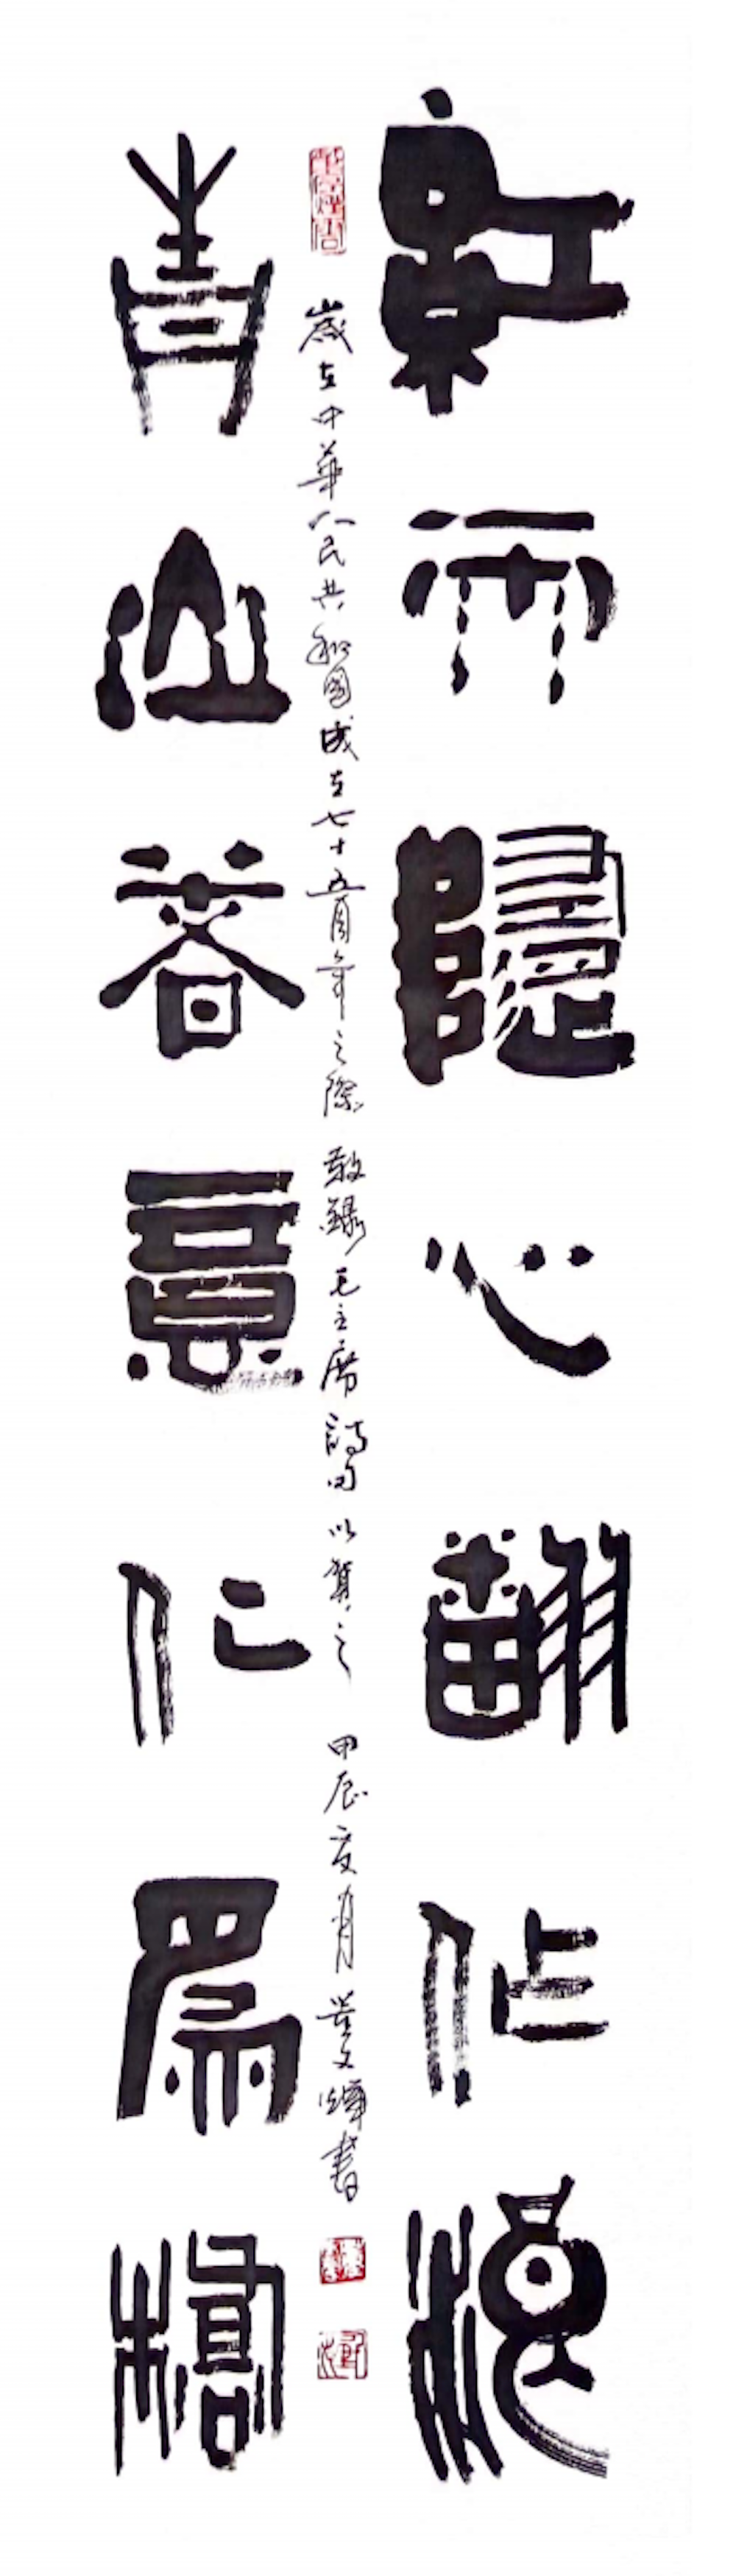 紅雨隨心翻作浪
歲在中華人民共和國成立七十五周年之際 敬錄毛主席詩句以賀之 甲辰夏月 黃文煇書
青山著意化爲橋